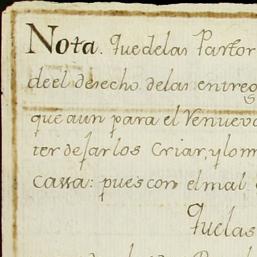 Nota. Que de las Partor
de el desecho de las entreg
que aun para el Venuevo
ter dejarlos Criar, y lo m
Cassa: pues con el mal
Que las